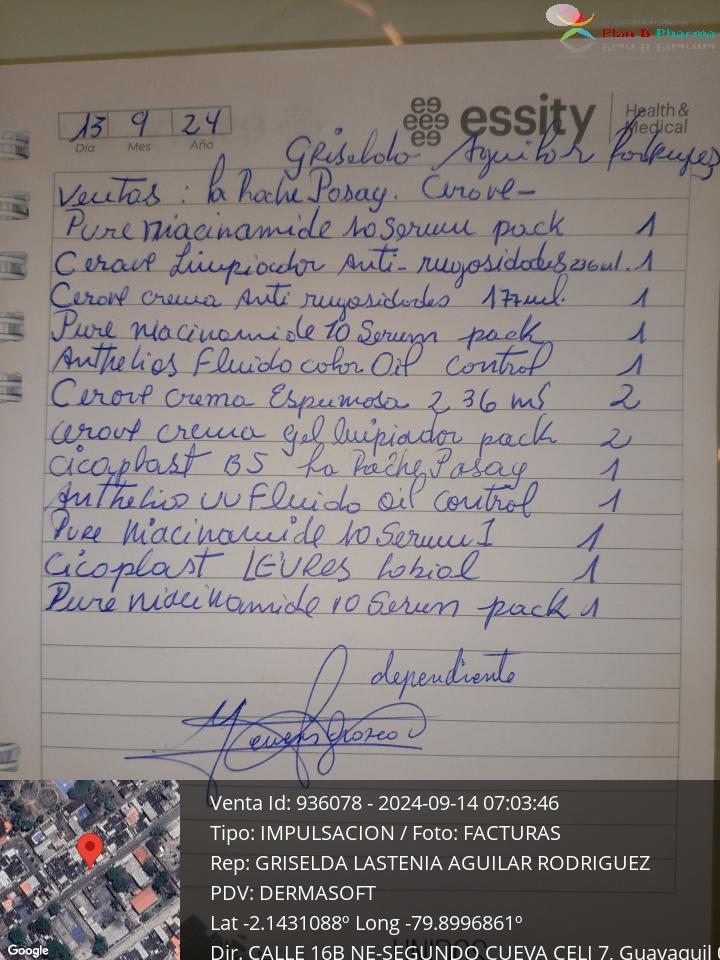 Plan B Pharma
13 9 24
Día Mes Año
essity Health & Medical
Griselda Aguilar Rodriguez
Ventas : la Roche Posay. Cerave-
Pure niacinamide 10 Serum pack 1
Cerave Limpiador Anti-rugosidades 236 ml. 1
Cerave crema Anti rugosidades 177 ml. 1
Pure niacinamide 10 Serum pack 1
Anthelios Fluido color Oil control 1
Cerave crema Espumosa 236 ml 2
cerave crema gel limpiador pack 2
Cicaplast B5 la Roche Posay 1
Anthelios UV Fluido Oil control 1
Pure Niacinamide 10 Serum 1 1
Cicaplast LEVRES Labial 1
Pure niacinamide 10 Serum pack 1
dependiente
Venta Id: 936078 - 2024-09-14 07:03:46
Tipo: IMPULSACION / Foto: FACTURAS
Rep: GRISELDA LASTENIA AGUILAR RODRIGUEZ
PDV: DERMASOFT
Lat -2.1431088º Long -79.8996861º
Dir. CALLE 16B NE-SEGUNDO CUEVA CELI 7, Guayaquil
Google